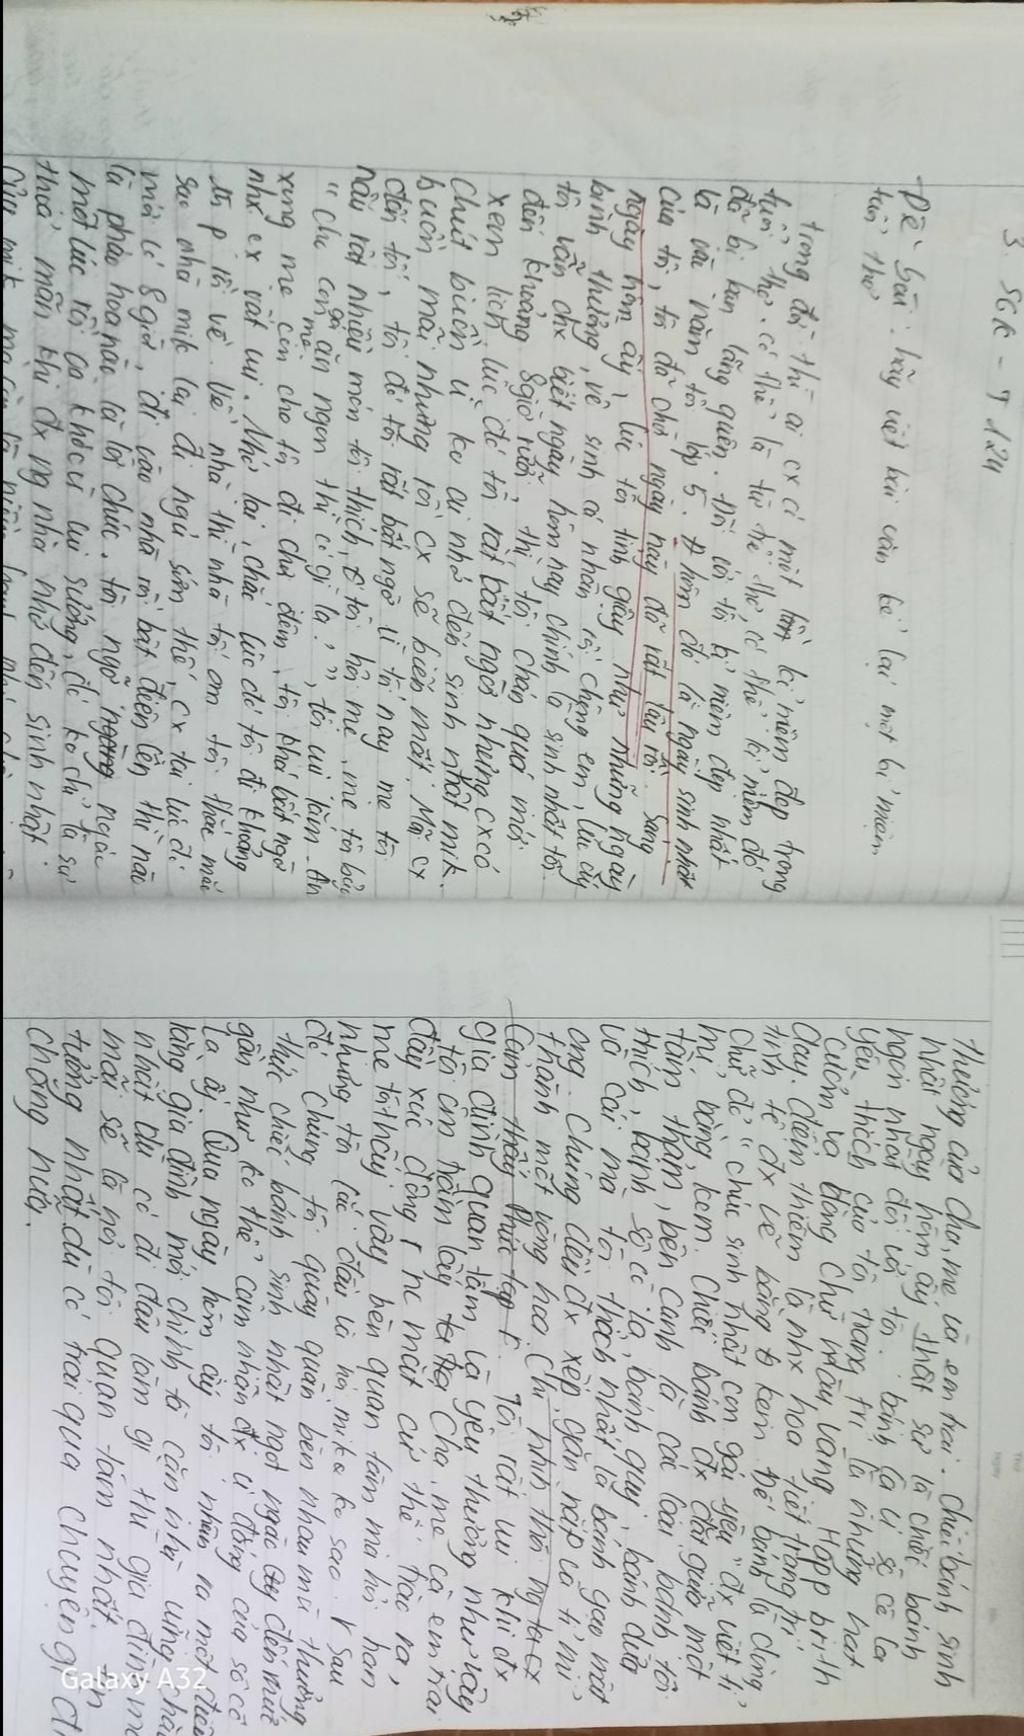 3. SGK - T124
Đề bài: hãy viết bài văn kể lại một kỉ niệm
tuổi thơ
trong đời thì ai cx có một kỉ niệm đẹp trong
tuổi thơ. có thể là từ bé thơ, có thể kỉ niệm đó
đã bị bạn lãng quên. Đối với tôi kỉ niệm đẹp nhất
là vào năm tôi lớp 5. hôm đó là ngày sinh nhật
của tôi, tôi đã chờ ngày này đã rất lâu rồi. Sáng
ngày hôm ấy, lúc tôi tỉnh giấy như những ngày
bình thường, vệ sinh cá nhân rồi chông em, lúc ấy
tôi vẫn chx biết ngày hôm nay chính là sinh nhật tôi
đến khoảng 8giờ rưỡi, thì tôi chán quá mới
xem lịch, lúc đó tôi rất bất ngờ nhưng cx có
chút buồn vì ko ai nhớ đến sinh nhật mik.
buồn mãi nhưng rồi cx sẽ biến mất. Mãi cx
đến tối, tôi đó tôi rất bất ngờ vì tối nay mẹ tôi
nấu rất nhiều món tôi thích, tôi hỏi mẹ, mẹ tôi bảo
" Cho con gái mẹ ăn ngon thì có gì lạ.", tôi vui lắm. Ăn
xong mẹ còn cho tôi đi chơi đêm, tôi khá bất ngờ
nhx cx vất vui. Nhớ lại, chắc lúc đó tôi đi khoảng
p rồi về. Về nhà thì nhà tối om tôi thắc mắc
sao nhà mik lại đi ngủ sớm thế, cx tại lúc đi
mới có 8giờ, đi vào nhà rồi bật điện lên thì nào
là pháo hoa nào là lời chúc. tôi ngỡ ngàng ngác
một lúc rồi òa khóc vì vui sướng, đó ko chỉ là sự
thoả mãn khi đx ng nhà nhớ đến sinh nhật
của mik mà còn là niềm
thương của cha, mẹ và em trai. Chiếc bánh sinh
nhật ngày hôm ấy thật sự là chiếc bánh
ngon nhất đối với tôi. bánh là vị sô cô la
yêu thích của tôi trang trí là những hạt
cườm và dòng chữ màu vàng Happ birth
day. điểm thêm là nhx hoa tiết trang trí
tinh tế đx vẽ bằng kem. Đế bánh là dòng
chữ đỏ " chúc sinh nhật con gái yêu" đx viết tỉ
mỉ bằng kem. Chiếc bánh đx đặt giữa một
tấm thảm, bên cạnh là các loại bánh tôi
thích, bánh sô cô la, bánh quy, bánh dừa
và cái mà tôi thích nhất là bánh gạo mật
ong. Chúng đều đx xếp gần nấp và tỉ mỉ
thành một vòng hoa. Chỉ nhìn thôi tôi cx
Cảm thấy phức tạp r. Tôi rất vui khi đx
gia đình quan tâm, và yêu thương như vậy
tôi ôm trầm lấy Cha, mẹ và em trai
đầy xúc động r nc mắt cứ thế trào ra,
mẹ tôi thấy vậy bèn quan tâm mà hỏi han
nhưng tôi lắc đầu và nói mik ko sao. r sau
đó Chúng tôi quây quần bên nhau mà thưởng
thức chiếc bánh sinh nhật ngọt ngào ấy đến mức
gần như ko thể cảm nhận đx vị đắng của sô cô
la ấy. Qua ngày hôm ấy tôi nhận ra một điều
rằng gia đình mới chính là căn nhà vững chắc
nhất dù có đi đâu làm gì thì gia đình
mãi sẽ là nơi tôi quan tâm nhất
tưởng nhất dù có trải qua chuyện gì
chăng nữa.
Galaxy A32